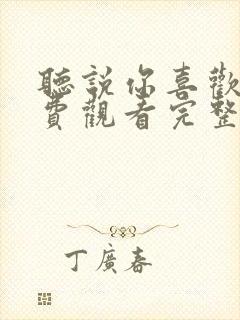 聽說你喜歡
費觀看完整
丁廣春